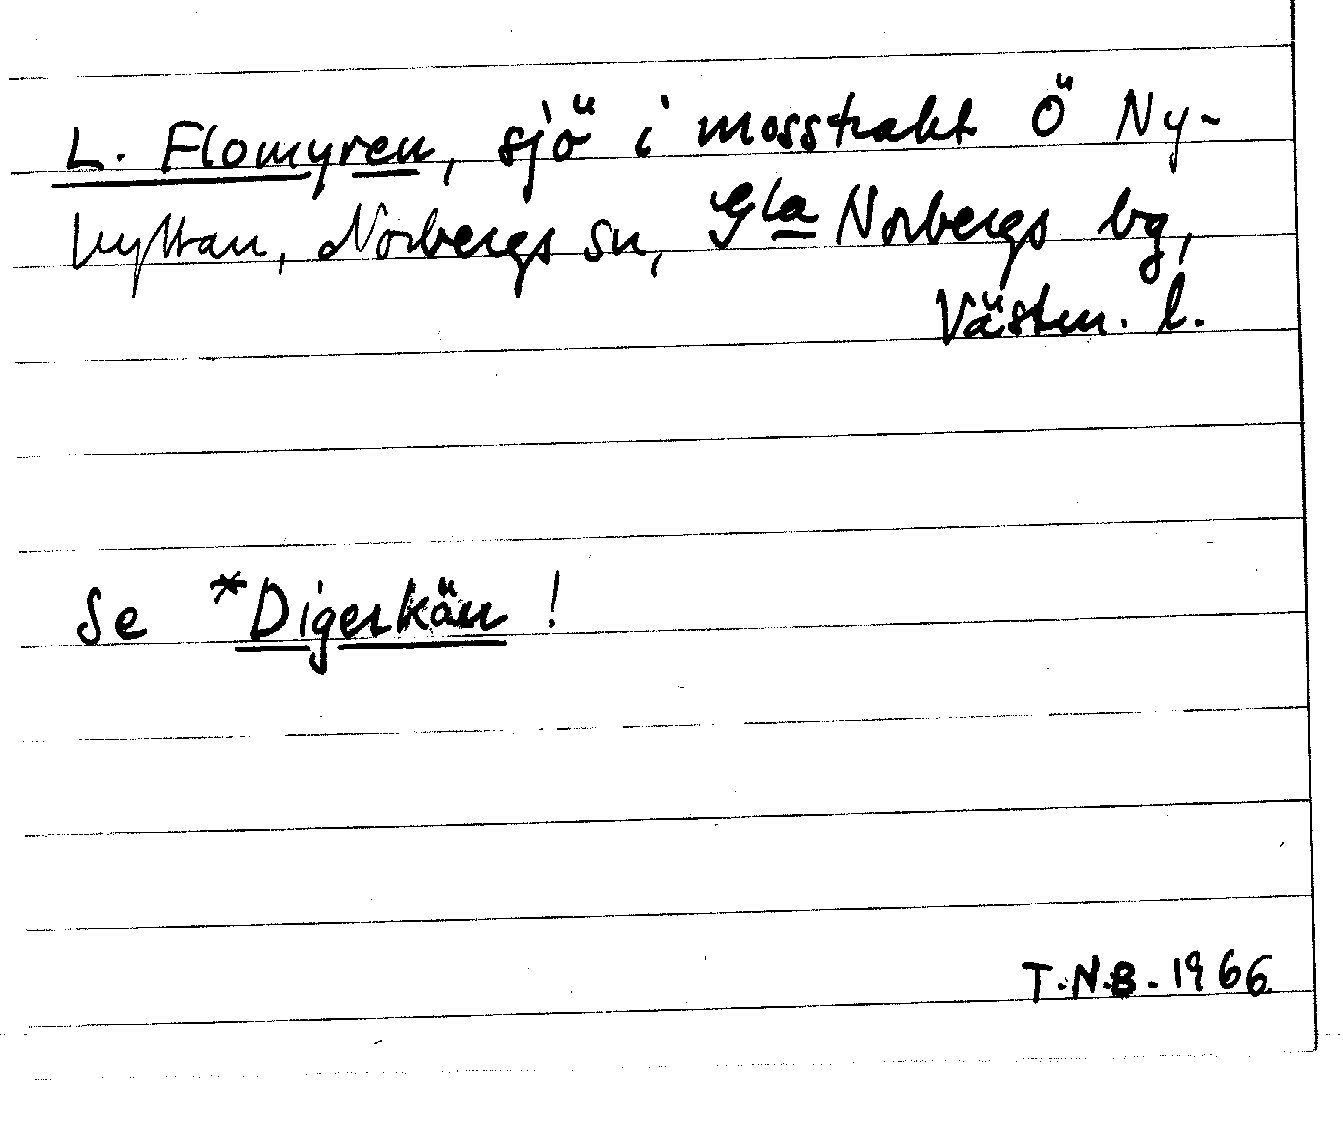 L. Flomyren, sjö i mosstrakt Ö Ny-
hyttan, Norbergs sn, Gla Norbergs bg,
Västm. l.
Se *Digerkärr !
T.N.B. 1966